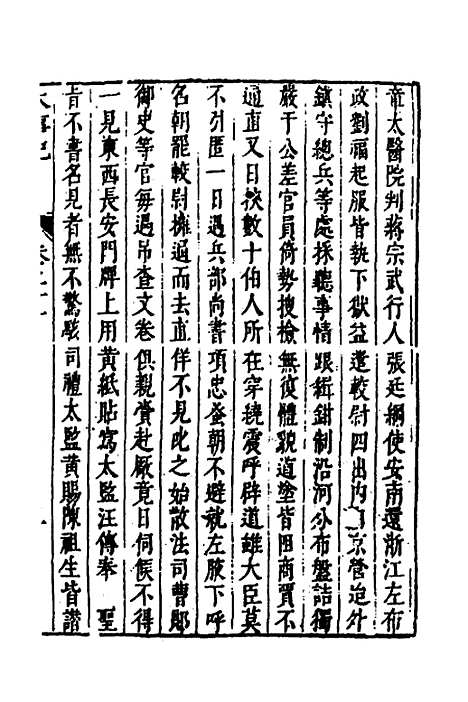 章太醫院判蔣宗武行人張廷綱使安南還浙江左布
政劉福起服皆執下獄益遣較尉四出内京營迨外
鎮守總兵等處採聽事情跟緝鉗制沿河分布盤詰獨
嚴于公差官員倚勢搜檢無復體貌道塗皆困商賈不
通直又日挾數十伯人所在穿繞震呼辟道雖大臣莫
不引匿一日遇兵部尚書項忠蚤朝不避就左腋下呼
名朝罷較尉擁逼而去直佯不見此之始散法司曹郎
御史等官每遇吊查文卷俱親賫赴厰竟日伺候不得
一見東西長安門牌上用黃紙貼寫太監汪傳奉　聖
旨不書名見者無不驚駭司禮太監黃賜陳祖生皆譖